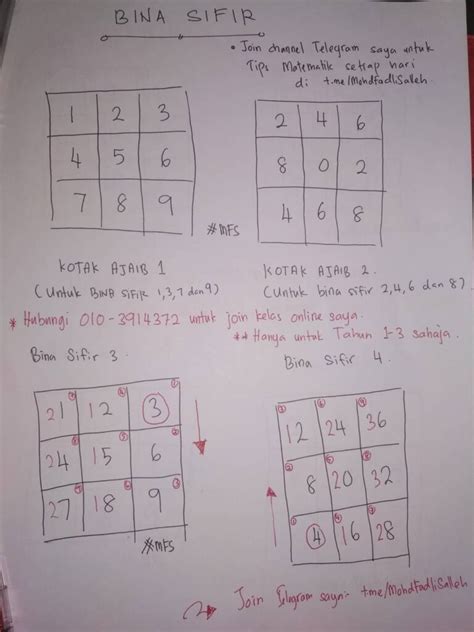 BINA SIFIR
• Join channel Telegram saya untuk
Tips Matematik setiap hari
di t.me/MohdFadliSalleh.
1 2 3
4 5 6
7 8 9
#MFS
2 4 6
8 0 2
4 6 8
KOTAK AJAIB 1
(Untuk BINA SIFIR 1,3,7 dan 9)
KOTAK AJAIB 2.
(Untuk bina sifir 2,4,6 dan 8).
* Hubungi 010-3914372 untuk join kelas online saya.
** Hanya untuk Tahun 1-3 sahaja.
Bina Sifir 3.
21 12 3
24 15 6
27 18 9
#MFS
Bina Sifir 4.
12 24 36
8 20 32
4 16 28
Join Telegram saya: t.me/MohdFadliSalleh